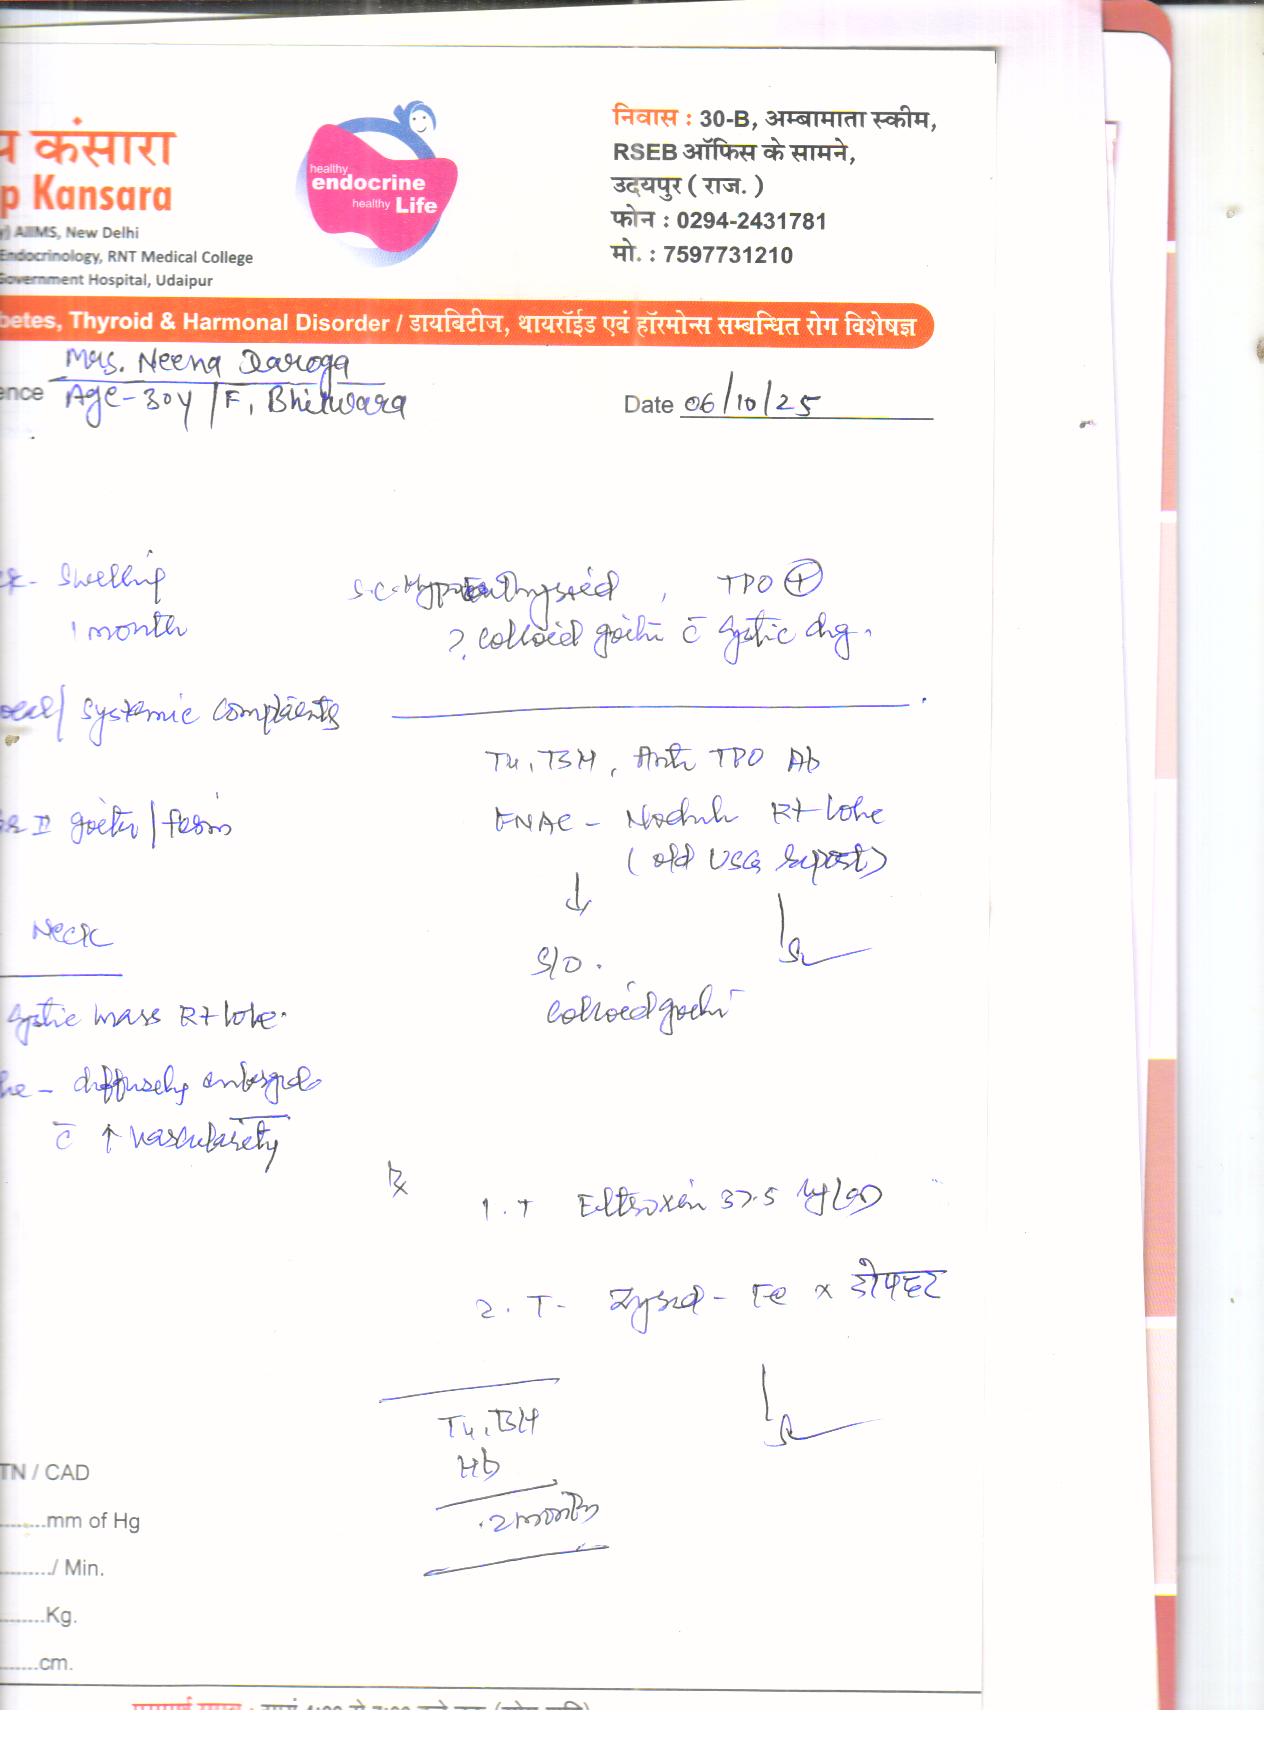 य कंसारा
p Kansara
y) AIIMS, New Delhi
Endocrinology, RNT Medical College
Government Hospital, Udaipur
healthy
endocrine
healthy Life
निवास : 30-B, अम्बामाता स्कीम,
RSEB ऑफिस के सामने,
उदयपुर ( राज. )
फोन : 0294-2431781
मो. : 7597731210
betes, Thyroid & Harmonal Disorder / डायबिटीज, थायरॉईड एवं हॉरमोन्स सम्बन्धित रोग विशेषज्ञ
Mrs. Neena Daroga
ence Age-30y/F, Bhilwara
Date 06/10/25
Swelling
1 month
S.C. Hypothyroid, TPO (+)
? Colloid goitre c̄ cystic chg.
ocal/ systemic complaints
T4, TSH, Anti TPO Ab
FNAC - Nodule Rt lobe
(old USG report)
II goiter/firm
↓
S/O.
Colloid goitre
Neck
Cystic mass Rt lobe.
- diffusely enlarged
c̄ ↑ vascularity
Rx
1. T Eltroxin 37.5
2. T- - Fe x दोपहर
T4, TSH
Hb
2 months
TN / CAD
........mm of Hg
......../ Min.
........Kg.
........cm.